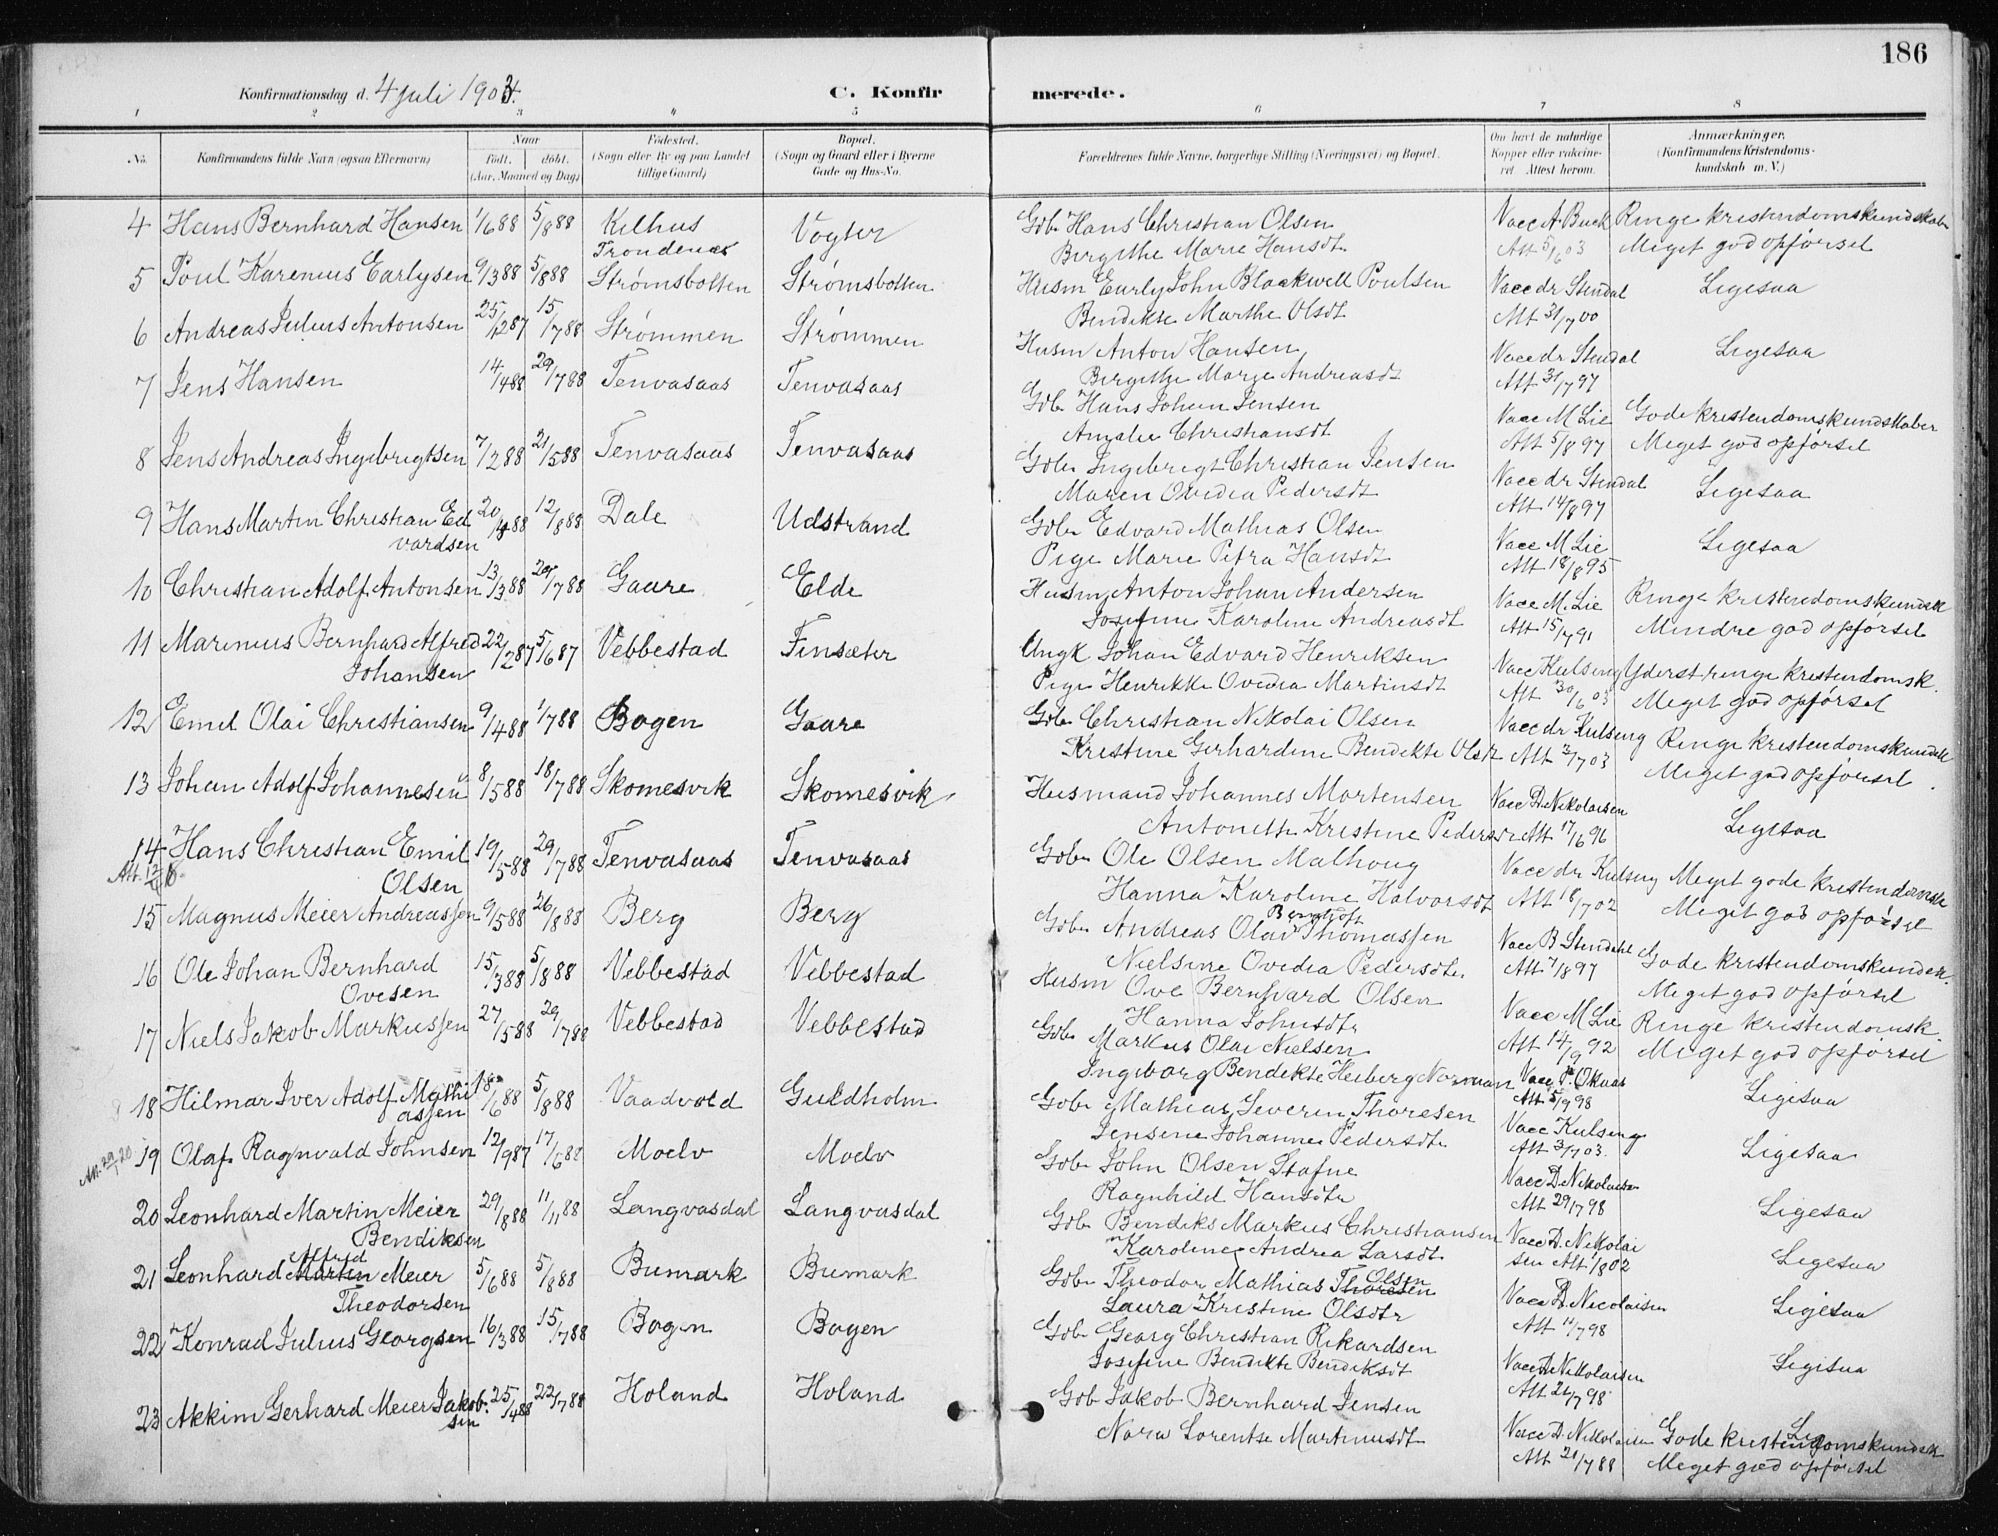 186
Konfirmationsdag d. 4 Juli 1903. C. Konfirmerede.
1 2 3 4 5 6 7 8
No. Konfirmandens fulde Navn (ogsaa Efternavn) Naar født. døbt. (Aar, Maaned og Dag) Fødested. (Sogn eller By og paa Landet tillige Gaard) Bopæl. (Sogn og Gaard eller i Byerne Gade og Hus-No. Forældrenes fulde Navne, borgerlige Stilling (Næringsvei) og Bopæl. Om havt de naturlige Kopper eller vakcineret Attest herom. Anmærkninger. (Konfirmandens Kristendomskundskab m. V.)
4 Hans Bernhard Hansen 1/6 88 5/8 88 Kilhus Trondenæs Vogter Gbr. Hans Christian Olsen Vacc A. Buch Ringe kristendomskundskab
Birgithe Marie Hansdt Att 5/6 03 Meget god opførsel
5 Poul Karenius Earlysen 9/3 88 5/8 88 Strømsbotten Strømsbotten Husm Early John Blackwell Poulsen Vacc dr Stendal Ligesaa
Bendikte Marthe Olsdt Att 31/7 00
6 Andreas Julius Antonsen 25/12 87 15/7 88 Strømmen Strømmen Husm Anton Hansen Vacc dr Stendal Ligesaa
Birgithe Marie Andreasdt Att 31/7 97
7 Jens Hansen 14/4 88 29/7 88 Tenvasaas Tenvasaas Gbr. Hans Johan Jensen Vacc M Lie Gode kristendomskundskaber
Amalie Christiansdt Att 5/8 97 Meget god opførsel
8 Jens Andreas Ingebrigtsen 7/2 88 21/5 88 Tenvasaas Tenvasaas Gbr Ingebrigt Christian Jensen Vacc dr Stendal Ligesaa
Maren Ovidia Pedersdt Att 14/8 97
9 Hans Martin Christian Edvardsen 20/4 88 12/8 88 Dale Udstrand Gbr Edvard Mathias Olsen Vacc M Lie Ligesaa
Pige Marie Petra Hansdt Att 18/8 95
10 Christian Adolf Antonsen 13/3 88 29/7 88 Gaare Elde Husm Anton Johan Andersen Vacc M. Lie Ringe kristendomskundsk
Josefine Karoline Andreasdt Att 15/7 91 Mindre god opførsel
11 Marinius Bernhard Alfred Johansen 22/2 87 5/6 87 Vebbestad Finsæter Ungk Johan Edvard Henriksen Vacc Kulseng Yderst ringe kristendomsk.
Pige Henrikke Ovidia Martinsdt Att 30/6 03 Meget god opførsel
12 Emil Olai Christiansen 9/4 88 1/7 88 Bogen Gaare Gbr Christian Nikolai Olsen Vacc dr Kulseng Ringe kristendomskundsk
Kristine Gerhardine Bendikte Olsdt Att 3/7 03 Meget god opførsel
13 Johan Adolf Johannesen 8/5 88 18/7 88 Skomesvik Skomesvik Husmand Johannes Mortensen Vacc D. Nikolaisen Ligesaa
Antonette Kristine Pedersdt Att 17/6 96
14 Hans Christian Emil Olsen 19/5 88 29/7 88 Tenvasaas Tenvasaas Gbr Ole Olsen Malhoug Vacc dr Kulseng Meget gode kristendomsk
Hanna Karoline Halvorsdt Att 18/7 02 Meget god opførsel
15 Magnus Meier Andreassen 9/5 88 26/8 88 Berg Berg Gbr Andreas Olai Berntoft Thomassen Vacc B Stendahl Gode kristendomskundsk.
Nielsine Ovedia Pedersdtr Att 7/8 97 Meget god opførsel
16 Ole Johan Bernhard Ovesen 15/3 88 5/8 88 Vebbestad Vebbestad Husm Ove Bernhard Olsen Vacc M Lie Ringe kristendomsk.
Hanna Johnsdtr Att 14/9 92 Meget god opførsel
17 Niels Jakob Markussen 27/5 88 29/7 88 Vebbestad Vebbestad Gbr Markus Olai Nielsen Vacc P. Okaas Ligesaa
Ingeborg Bendikte Heiberg Norman Att 5/9 98
18 Hilmar Iver Adolf Mathiassen 18/6 88 5/8 88 Vaadvold Guldholm Gbr Mathias Severin Thoresen Vacc Kulseng Ligesaa
Jensine Johanne Pedersdtr Att 3/7 03.
19 Olaf Ragnvald Johnsen 12/9 87 17/6 88 Moelv Moelv Gbr John Olsen Stafne Vacc D. Nikolaisen Ligesaa
Att. 29/1 20 Ragnhild Hansdtr Att 29/7 98
20 Leonhard Martin Meier Bendiksen 29/8 88 11/11 88 Langvasdal Langvasdal Gbr Bendiks Markus Christiansen Vacc D. Nikolaisen Ligesaa
Karoline Andrea Larsdt Att 1/8 02
21 Leonhard Martin Alfred Meier Theodorsen 5/6 88 5/8 88 Bumark Bumark Gbr Theodor Mathias Thoresen Olsen Vacc D. Nicolaisen Ligesaa
Laura Kristine Olsdtr Att 11/7 98
22 Konrad Julius Georgsen 16/3 88 15/7 88 Bogen Bogen Gbr Georg Christian Rikardsen Vacc D. Nikolaisen Ligesaa
Josefine Bendikte Bendiksdt Att 21/7 98
23 Akkim Gerhard Meier Jakobsen 25/4 88 22/7 88 Holand Holand Gbr Jakob Bernhard Jensen Vacc D. Nikolaisen Gode kristendomskundsk
Nora Lorentse Martinusdt Att 21/7 88 Meget god opførsel